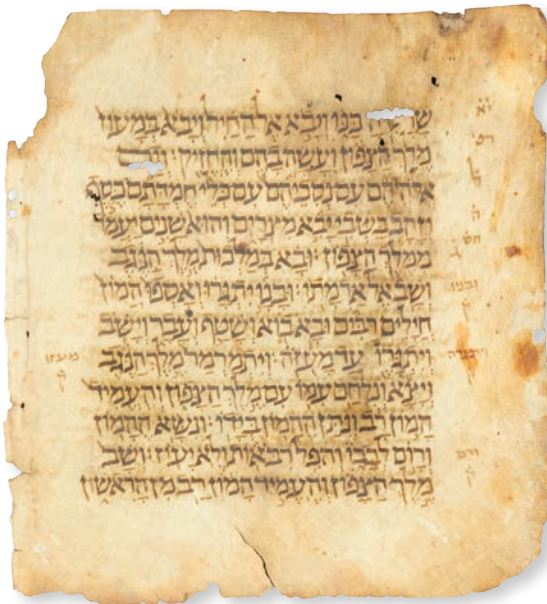 שרשיה כנו ויבא אל החיל ויבא במעוז
מלך הצפון ועשה בהם והחזיק : וגם
אלהיהם עם נסכיהם עם כלי חמדתם כסף
וזהב בשבי יבא מצרים והוא שנים יעמד
ממלך הצפון : ובא במלכות מלך הנגב
ושב אל אדמתו : ובנו יתגרו ואספו המון
חילים רבים ובא בוא ושטף ועבר וישב
ויתגרו עד מעזה : ויתמרמר מלך הנגב
ויצא ונלחם עמו עם מלך הצפון והעמיד
המון רב ונתן ההמון בידו : ונשא ההמון
ורום לבבו והפל רבאות ולא יעוז : ושב
מלך הצפון והעמיד המון רב מן הראשון
ובנו
ק
ויתגרה
ק
ורם
ק
מעזו
ק